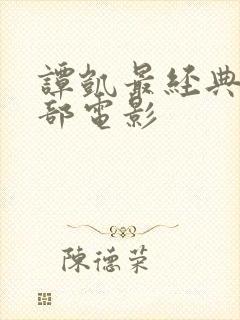 譚凱最經典
部電影
陳德荣